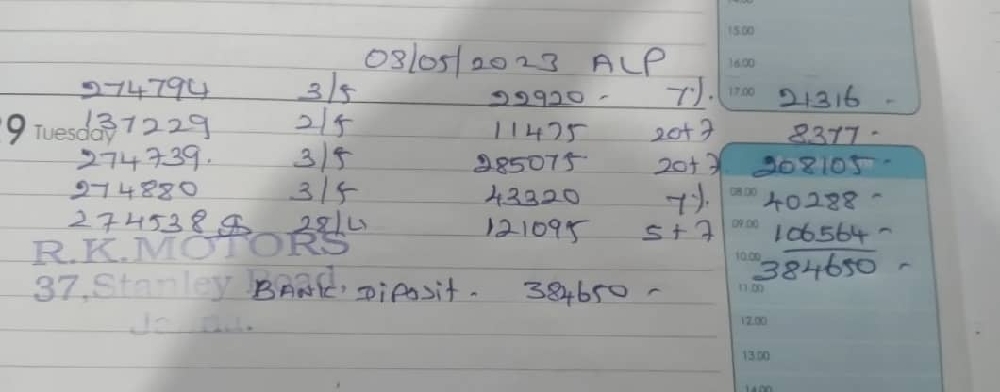 15.00
03/05/2023 ALP
16.00
274794 3/5 22920 - 7%. 17.00 21316 -
9 Tuesday 137229 2/5 11475 20+7 8377 -
274739. 3/5 285075 20+7 208105 -
274880 3/5 43320 7%. 08.00 40288 -
274538 28/4 121095 5+7 09.00 106564 -
R.K.MOTORS
10.00 384650 -
37, Stanley Road,
BANK. DiPosit - 384650 -
11.00
12.00
13.00
14.00